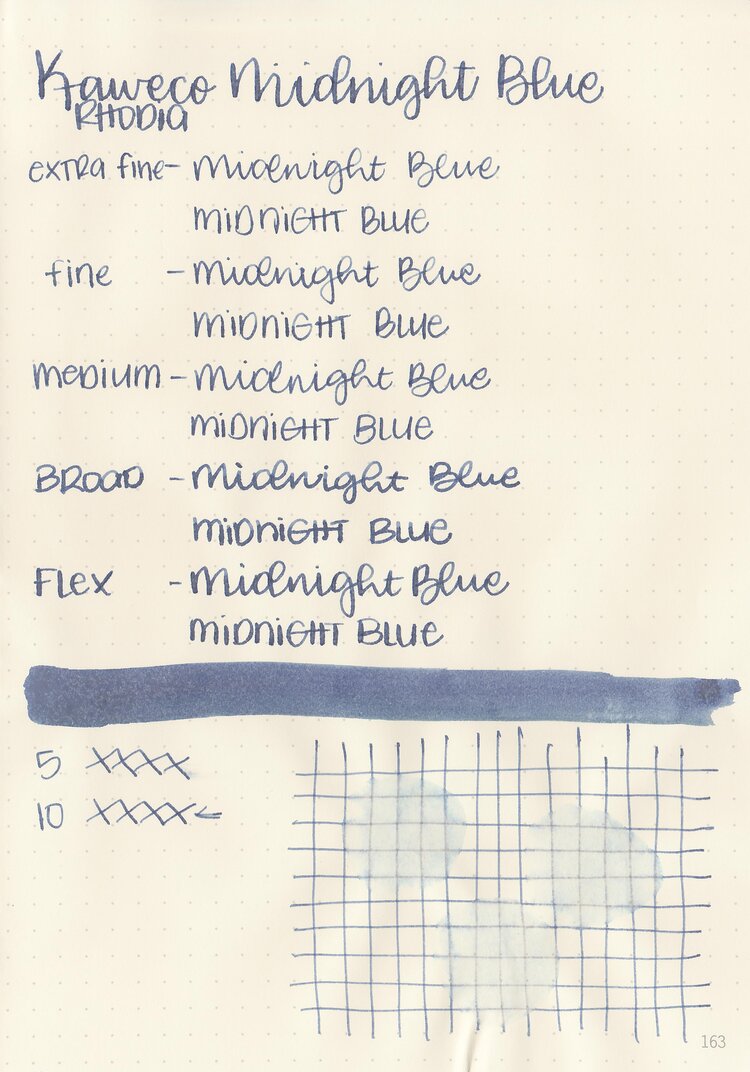 Kaweco Midnight Blue
RHODIA
extra fine- Midnight Blue
MIDNIGHT BLUE
fine - Midnight Blue
MIDNIGHT BLUE
medium - Midnight Blue
MIDNIGHT BLUE
BROAD - Midnight Blue
MIDNIGHT BLUE
FLEX - Midnight Blue
MIDNIGHT BLUE
5 XXXX
10 XXXX←
163